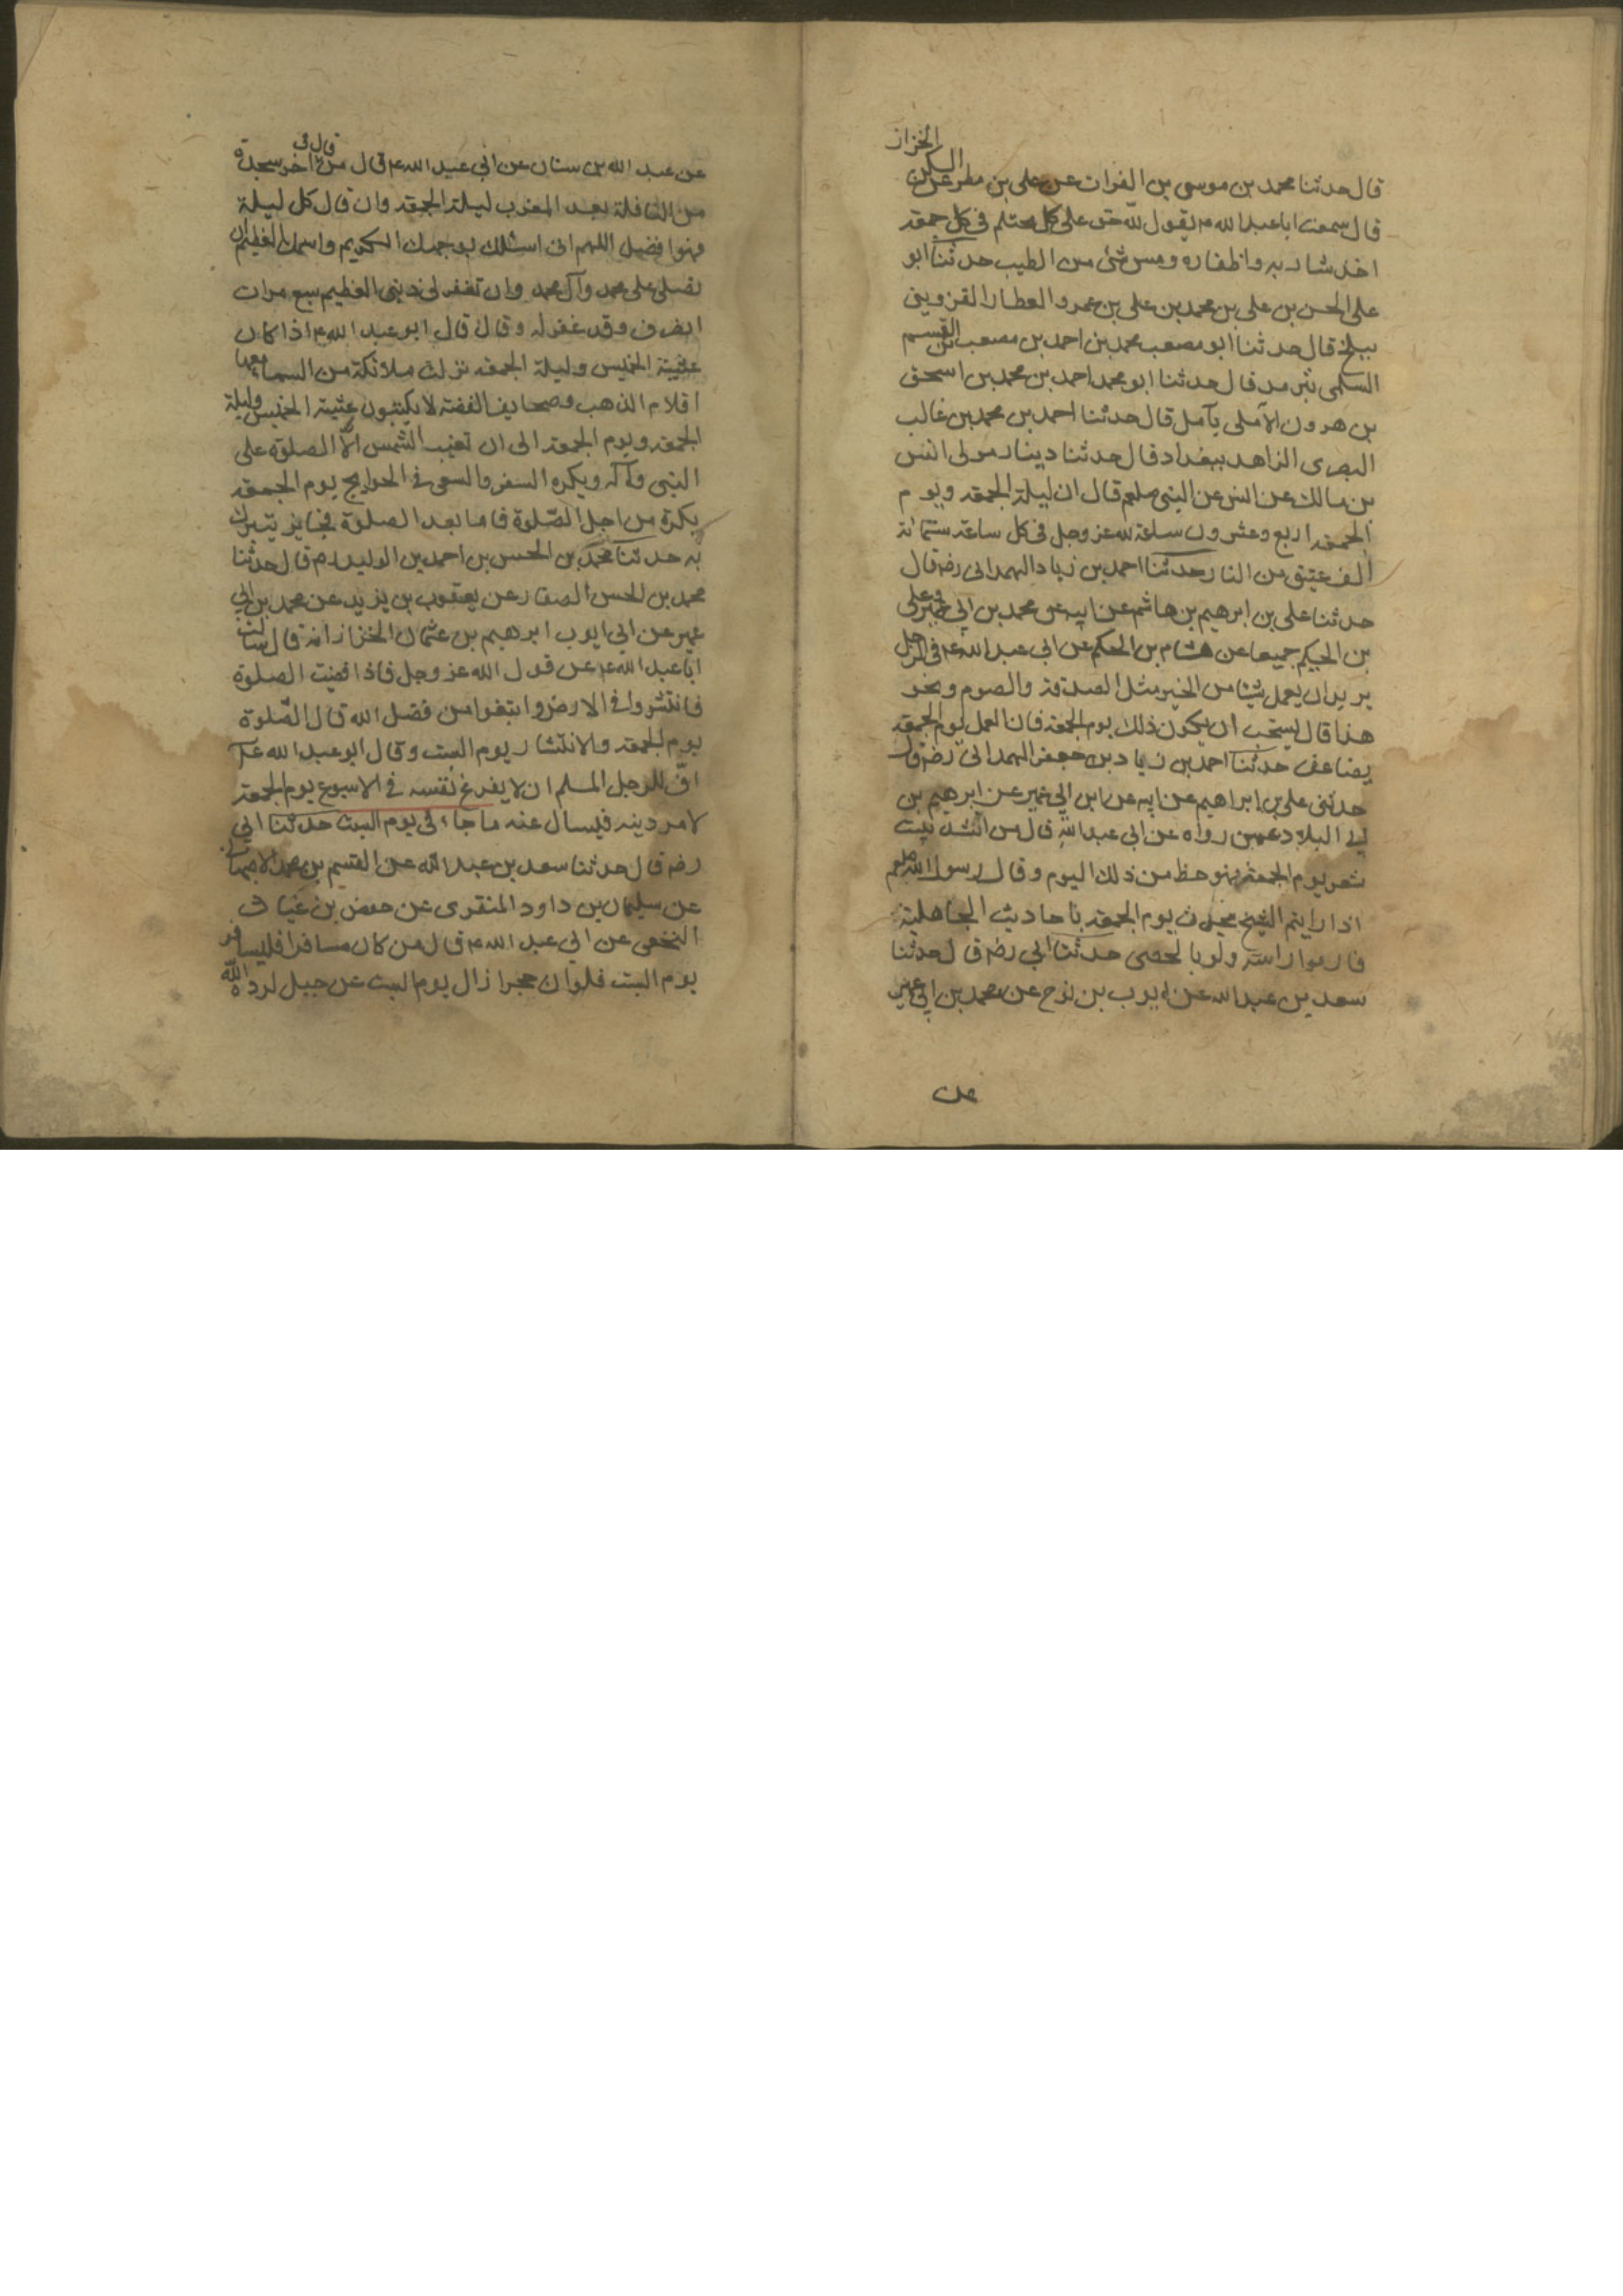 الخزاز
قال حدثنا محمد بن موسى بن الفرات عن على بن مطر عن السكن
قال سمعت ابا عبد الله ع يقول لله حق على كل محتلم فى كل جمعة
اخذ شاربه واظفاره ومس شئ من الطيب حدثنا ابو
على الحسن بن على بن محمد بن على بن عمرو العطار القزوينى
ببلخ قال حدثنا ابو مصعب محمد بن احمد بن مصعب بن القسم
السلمى بترمد قال حدثنا ابو محمد احمد بن محمد بن اسحق
بن هرون الآملى بآمل قال حدثنا احمد بن محمد بن غالب
البصرى الزاهد ببغداد قال حدثنا دينار مولى انس
بن مالك عن انس عن النبى صلعم قال ان ليلة الجمعة ويوم
الجمعة اربع وعشرون ساعة لله عز وجل فى كل ساعة ستمائة
الف عتيق من النار حدثنا احمد بن زياد الهمدانى رض قال
حدثنا على بن ابرهيم بن هاشم عن ابيه عن محمد بن ابى عمير وعلى
بن الحكيم جميعا عن هشام بن الحكم عن ابى عبد الله ع فى الرجل
يريد ان يعمل شيئا من الخير مثل الصدقة والصوم ونحو
هذا قال يستحب ان يكون ذلك يوم الجمعة فان العمل يوم الجمعة
يضاعف حدثنا احمد بن زياد بن جعفر الهمدانى رض قال
حدثنى على بن ابراهيم عن ابيه عن ابن ابى عمير عن ابرهيم بن
ابى البلاد عمن رواه عن ابى عبد الله قال من انشد بيت
شعر يوم الجمعة فهو حظ من ذلك اليوم وقال رسول الله صلعم
اذا رايتم الشيخ يحدث يوم الجمعة باحاديث الجاهلية
فارموا راسه ولو بالحصى حدثنا ابى رض قال حدثنا
سعد بن عبد الله عن ايوب بن نوح عن محمد بن ابى عمير
عن
عن عبد الله بن سنان عن ابى عبد الله ع قال من قال فى اخر سجدة
من النافلة بعد المغرب ليلة الجمعة وان قال كل ليلة
فهو افضل اللهم انى اسئلك بوجهك الكريم واسمك العظيم ان
تصلى على محمد وآل محمد وان تغفر لى ذنبى العظيم سبع مرات
انصرف وقد غفر له وقال قال ابو عبد الله ع اذا كان
عشية الخميس وليلة الجمعة نزلت ملائكة من السماء معها
اقلام الذهب وصحايف الفضة لا يكتبون عشية الخميس وليلة
الجمعة ويوم الجمعة الى ان تغيب الشمس الا الصلوة على
النبى وآله ويكره السفر والسعى فى الحوايج يوم الجمعة
يكره من اجل الصلوة فاما بعد الصلوة فجايز يتبرك
به حدثنا محمد بن الحسن بن احمد بن الوليد رض قال حدثنا
محمد بن الحسن الصفار عن يعقوب بن يزيد عن محمد بن ابى
عمير عن ابى ايوب ابرهيم بن عثمان الخزاز انه قال سالت
ابا عبد الله ع عن قول الله عز وجل فاذا قضيت الصلوة
فانتشروا فى الارض وابتغوا من فضل الله قال الصلوة
يوم الجمعة والانتشار يوم السبت وقال ابو عبد الله ع
اف للرجل المسلم ان لا يفرغ نفسه فى الاسبوع يوم الجمعة
لامر دينه فيسال عنه ما جاء فى يوم السبت حدثنا ابى
رض قال حدثنا سعد بن عبد الله عن القسم بن محمد الاصبهانى
عن سليمان بن داود المنقرى عن حفص بن غياث
النخعى عن ابى عبد الله ع قال من كان مسافرا فليسافر
يوم السبت فلو ان حجرا زال يوم السبت عن جبل لرده الله